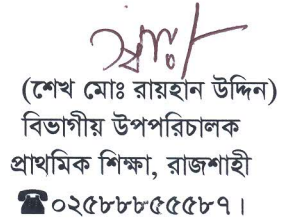 স্বাঃ/
(শেখ মোঃ রায়হান উদ্দিন)
বিভাগীয় উপপরিচালক
প্রাথমিক শিক্ষা, রাজশাহী
☎০২৫৮৮৮৫৫৫৮৭।